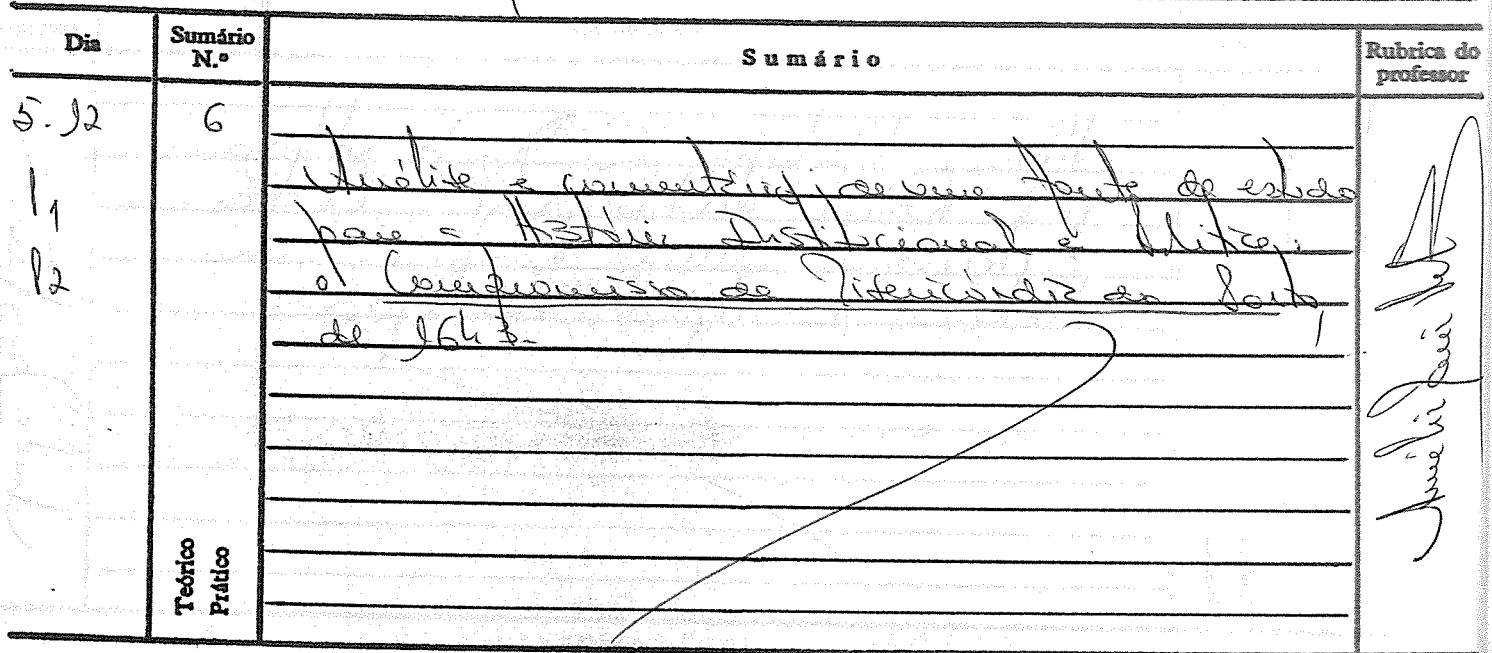 Dia
Sumário N.º
Sumário
Rubrica do professor
5.12
6
P1
P2
Análise e comentário de uma fonte de estudo
para a História Institucional e Política:
o Compromisso da Misericórdia do Porto,
de 1643.
Teórico
Prático